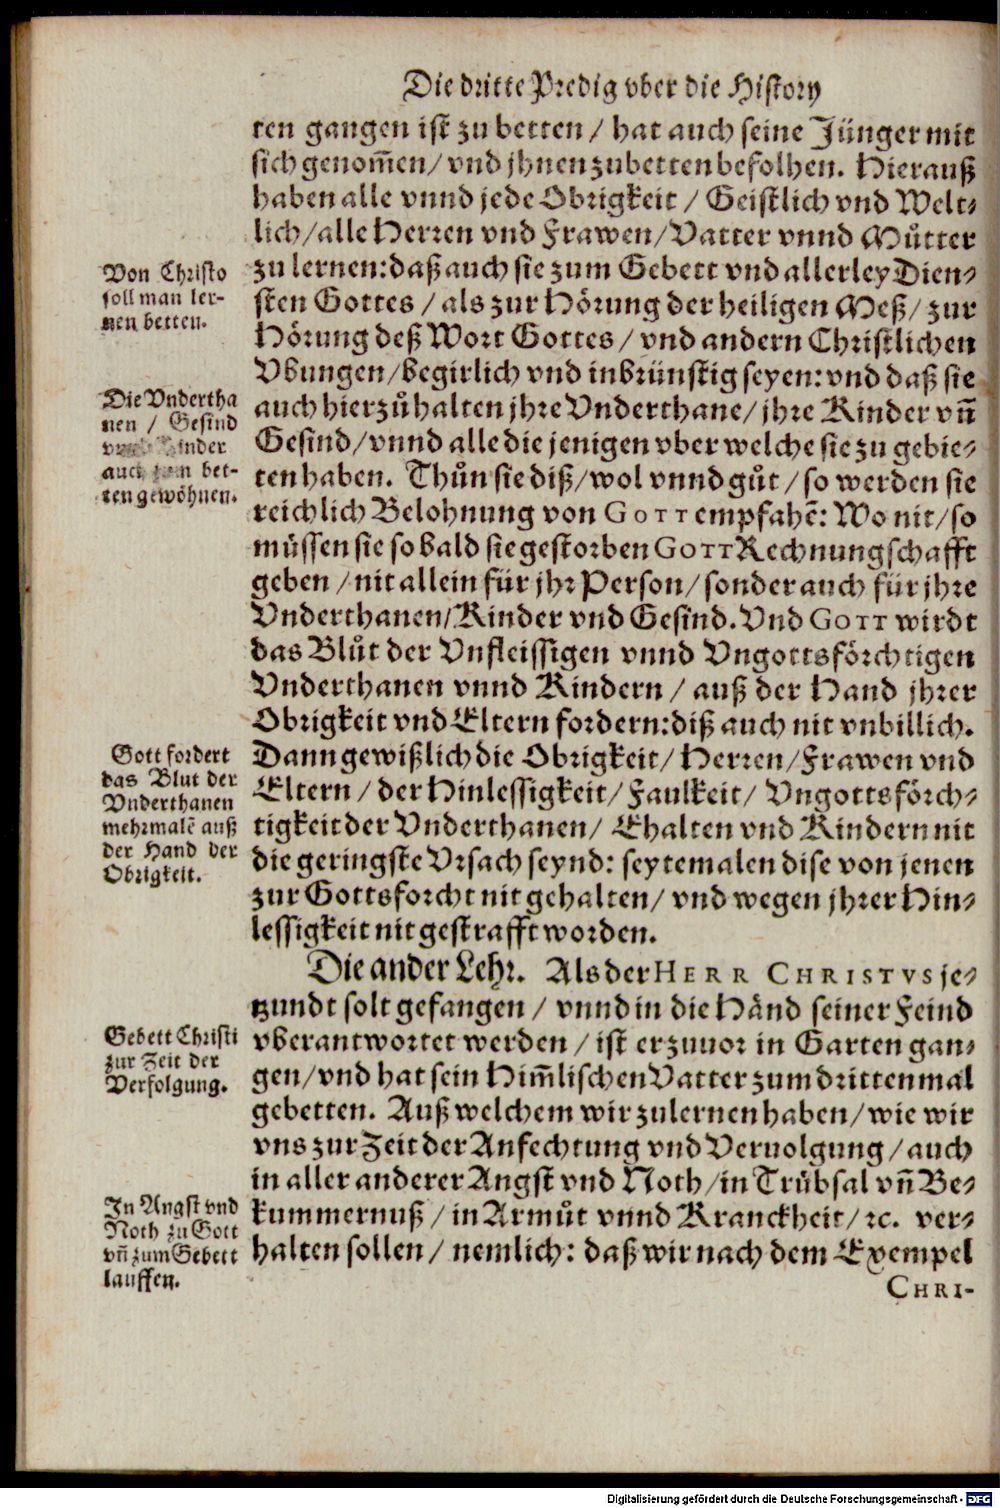 Die dritte Predig vber die History
ten gangen ist zu betten / hat auch seine Jünger mit
sich genom̃en / vnd jhnen zubetten befolhen. Hierauß
haben alle vnnd jede Obrigkeit / Geistlich vnd Welt⸗
lich / alle Herren vnd Frawen / Vatter vnnd Muͤtter
zu lernen: daß auch sie zum Gebett vnd allerley Dien⸗
sten Gottes / als zur Hörung der heiligen Meß / zur
Hörung deß Wort Gottes / vnd andern Christlichen
Vbungen / begirlich vnd inbrünstig seyen: vnd daß sie
auch hierzů halten jhre Vnderthane / jhre Kinder vñ
Gesind / vnnd alle die jenigen vber welche sie zu gebie⸗
ten haben. Thůn sie diß / wol vnnd gůt / so werden sie
reichlich Belohnung von GOTT empfahẽ: Wo nit / so
müssen sie so bald sie gestorben GOTT Rechnungschafft
geben / nit allein für jhr Person / sonder auch für jhre
Vnderthanen / Kinder vnd Gesind. Vnd GOTT wirdt
das Blůt der Vnfleissigen vnnd Vngottsförchtigen
Vnderthanen vnnd Kindern / auß der Hand jhrer
Obrigkeit vnd Eltern fordern: diß auch nit vnbillich.
Dann gewißlich die Obrigkeit / Herren / Frawen vnd
Eltern / der Hinlessigkeit / Faulkeit / Vngottsförch⸗
tigkeit der Vnderthanen / Ehalten vnd Kindern nit
die geringste Vrsach seynd: seytemalen dise von jenen
zur Gottsforcht nit gehalten / vnd wegen jhrer Hin⸗
lessigkeit nit gestrafft worden.
Die ander Lehr. Als der HERR CHRISTVS je⸗
tzundt solt gefangen / vnnd in die Händ seiner Feind
vberantwortet werden / ist er zuuor in Garten gan⸗
gen / vnd hat sein Him̃lischen Vatter zum dritten mal
gebetten. Auß welchem wir zulernen haben / wie wir
vns zur Zeit der Anfechtung vnd Veruolgung / auch
in aller anderer Angst vnd Noth / in Trübsal vñ Be⸗
kummernuß / in Armůt vnnd Kranckheit / ꝛc. ver⸗
halten sollen / nemlich: daß wir nach dem Exempel
CHRI-
Von Christo
soll man ler-
nen betten.
Die Vndertha
nen / Gesind
Kinder
auch bet-
ten gewöhnen.
Gott fordert
das Blut der
Vnderthanen
mehrmalẽ auß
der Hand der
Obrigkeit.
Gebett Christi
zur Zeit der
Verfolgung.
In Angst vnd
Noth zu Gott
vñ zum Gebett
lauffen.
Digitalisierung gefördert durch die Deutsche Forschungsgemeinschaft - DFG